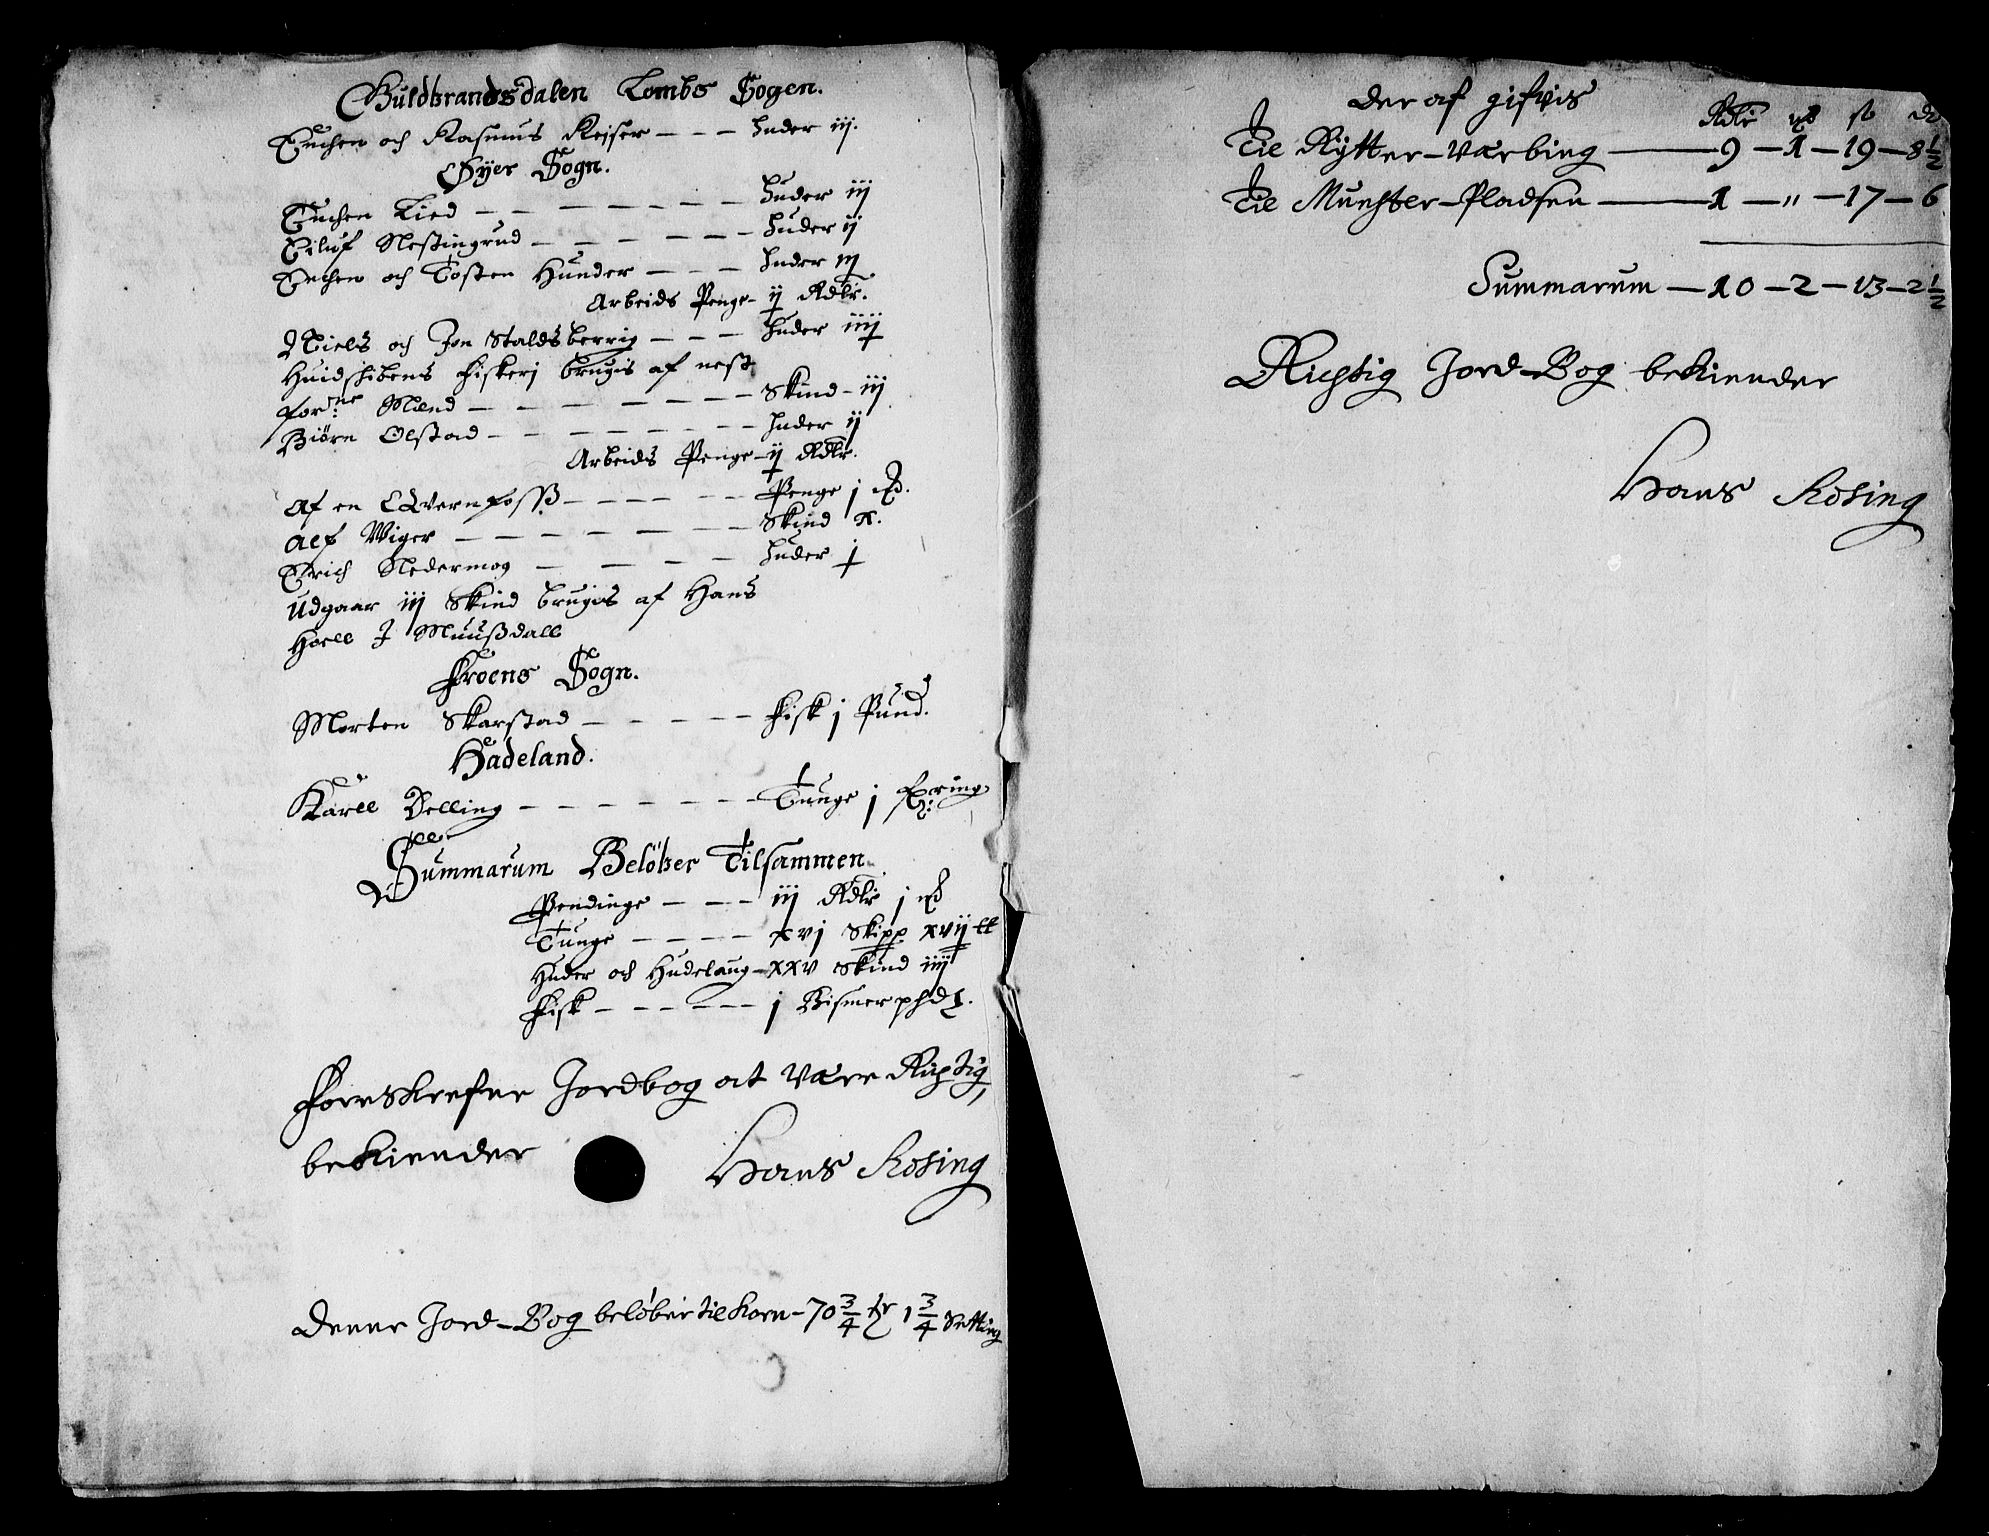 Guldbrandsdalen Lombs Sogen.
Euchen och Rasmus Keiser — — — huder iij.
Øyer Sogn.
Euchen Lied — — — huder iij
Eiluf Nestingrud — — — huder ij
Enchen och Tosten Hunder — — — huder iij
Arbeids Penge – ij Rdlr.
Niels och Jon Staldsberrig — — — huder iiij
Huidshibens fiskerj brugis af nest
forne: Mænd — — — Skind – iij
Biørn Olstad — — — huder ij
Arbeids Penge – ij Rdlr.
Af en Qvernfoss — — — Penge j
Alf Wiger — — — Skind x.
Erich Nedermog — — — huder j
Udgaar iij Skind brugis af Hans
Hoell J Muusdall
Froens Sogn.
Morten Skarstad — — — Fisk j Pund.
Hadeland.
Karll Delling — — — Tunge j fering
Summarum Beløber Tilsammen
Pendinge — — — iij Rdlr j
Tunge — — — xvj Skipp xvij
Huder och Hudelaug – xxv Skind iiij
Fisk — — — j Bismerphd
Forreskrefne Jordbog at være Rigtig,
bekiender Hans Rosing
Denne Jord-Bog beløber til Korn – 70 3/4 1 3/4 Setting
Der af gifvis
Rdlr st
Til Rytter-Værbing — 9 – 1 – 19 – 8 1/2
Til Munster-Pladsen — 1 – " – 17 – 6
Summarum — 10 – 2 – 13 – 2 1/2
Rigtig Jord-Bog bekiender
Hans Rosing